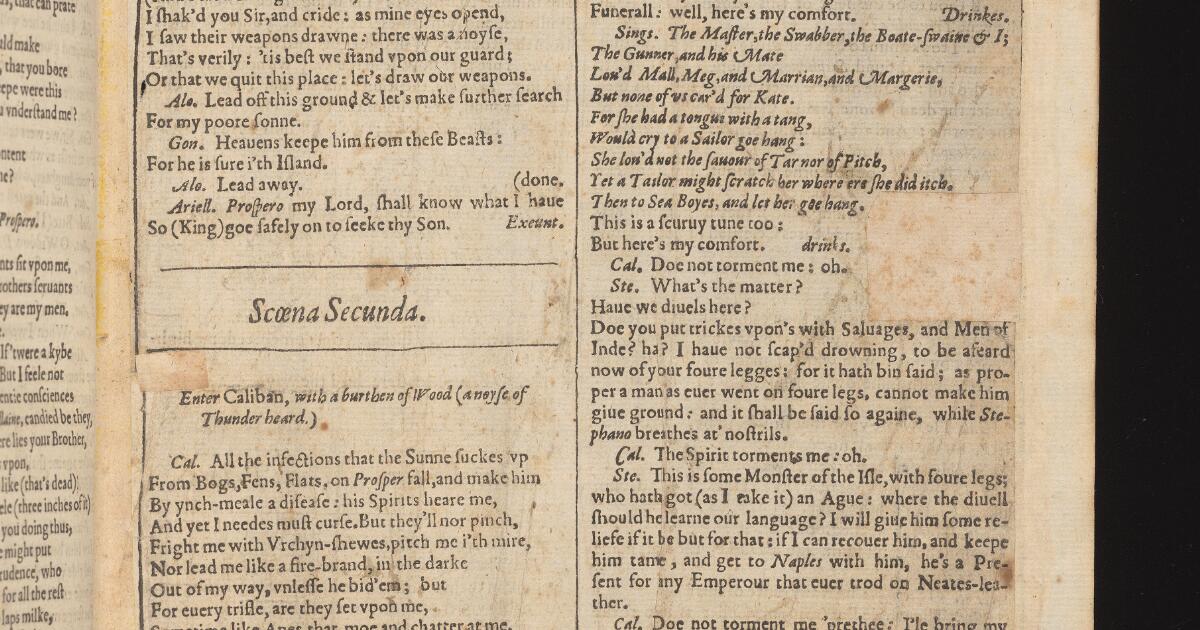 that can prate
uld make
, that you bore
eepe were this
u vnderstand me?
ntent
ne?
Prospero.
nts fit vpon me,
rothers seruants
ey are my men.
If 'twere a kybe
But I feele not
entie consciences
laine, candied be they,
ere lies your Brother,
vpon,
like (that's dead)
ele (three inches of it)
you doing thus,
e might put
rudence, who
for all the rest
laps milke,
I ſhak'd you Sir, and cride: as mine eyes opend,
I ſaw their weapons drawne: there was a noyſe,
That's verily: 'tis beſt we ſtand vpon our guard;
Or that we quit this place: let's draw our weapons.
Alo. Lead off this ground & let's make further ſearch
For my poore ſonne.
Gon. Heauens keepe him from theſe Beaſts:
For he is ſure i'th Iſland.
Alo. Lead away. (done.
Ariell. Proſpero my Lord, ſhall know what I haue
So (King) goe ſafely on to ſeeke thy Son. Exeunt.
Scœna Secunda.
Enter Caliban, with a burthen of Wood (a noyſe of
Thunder heard.)
Cal. All the infections that the Sunne ſuckes vp
From Bogs, Fens, Flats, on Proſper fall, and make him
By ynch-meale a diſeaſe: his Spirits heare me,
And yet I needes muſt curſe. But they'll nor pinch,
Fright me with Vrchyn-ſhewes, pitch me i'th mire,
Nor lead me like a fire-brand, in the darke
Out of my way, vnleſſe he bid 'em; but
For euery trifle, are they ſet vpon me,
Sometime like Apes, that moe and chatter at me,
Funerall: well, here's my comfort. Drinkes.
Sings. The Maſter, the Swabber, the Boate-ſwaine & I;
The Gunner, and his Mate
Lou'd Mall, Meg, and Marrian, and Margerie,
But none of vs car'd for Kate.
For ſhe had a tongue with a tang,
Would cry to a Sailor goe hang:
She lou'd not the ſauour of Tar nor of Pitch,
Yet a Tailor might ſcratch her where ere ſhe did itch.
Then to Sea Boyes, and let her goe hang.
This is a ſcuruy tune too:
But here's my comfort. drinks.
Cal. Doe not torment me: oh.
Ste. What's the matter?
Haue we diuels here?
Doe you put trickes vpon's with Saluages, and Men of
Inde? ha? I haue not ſcap'd drowning, to be afeard
now of your foure legges: for it hath bin ſaid; as pro-
per a man as euer went on foure legs, cannot make him
giue ground: and it ſhall be ſaid ſo againe, while Ste-
phano breathes at' noſtrils.
Cal. The Spirit torments me: oh.
Ste. This is ſome Monſter of the Iſle, with foure legs;
who hath got (as I take it) an Ague: where the diuell
ſhould he learne our language? I will giue him ſome re-
liefe if it be but for that: if I can recouer him, and keepe
him tame, and get to Naples with him, he's a Pre-
ſent for any Emperour that euer trod on Neates-lea-
ther.
Cal. Doe not torment me 'prethee: I'le bring my